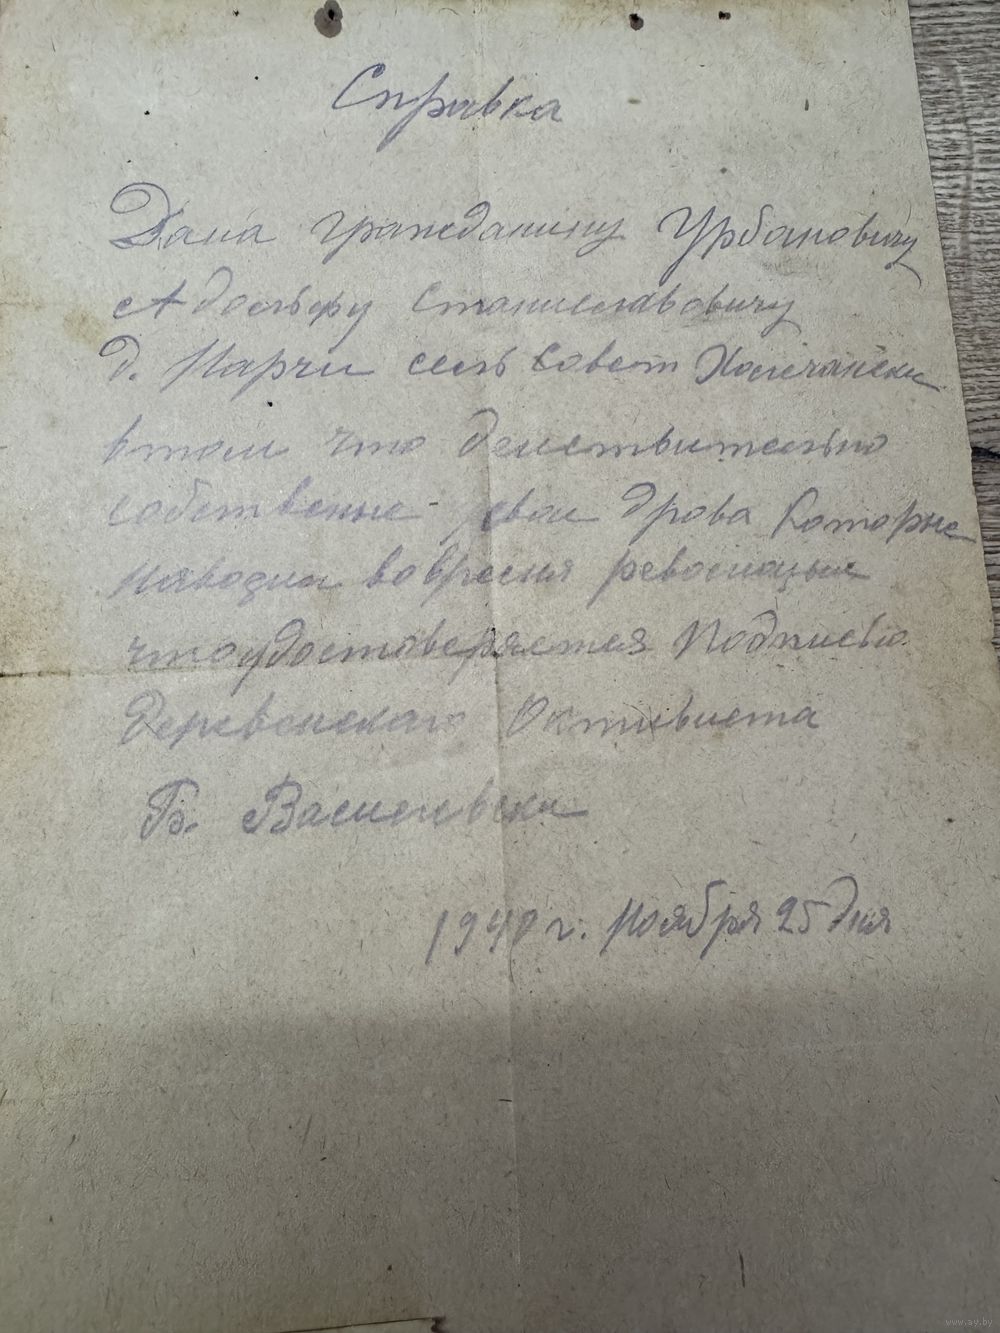 Справка
Дана гражданину Урбановичу
Адольфу Станиславовичу
д. Нарчи сельсовет Холхчански
втом что деиствительно
собственые свои дрова которые
навозил вовремя революцыи
чтоудостоверяется Подписью
деревенскаго Октивиста
Б. Василевски
1940 г. ноября 25 дня
www.ay.by